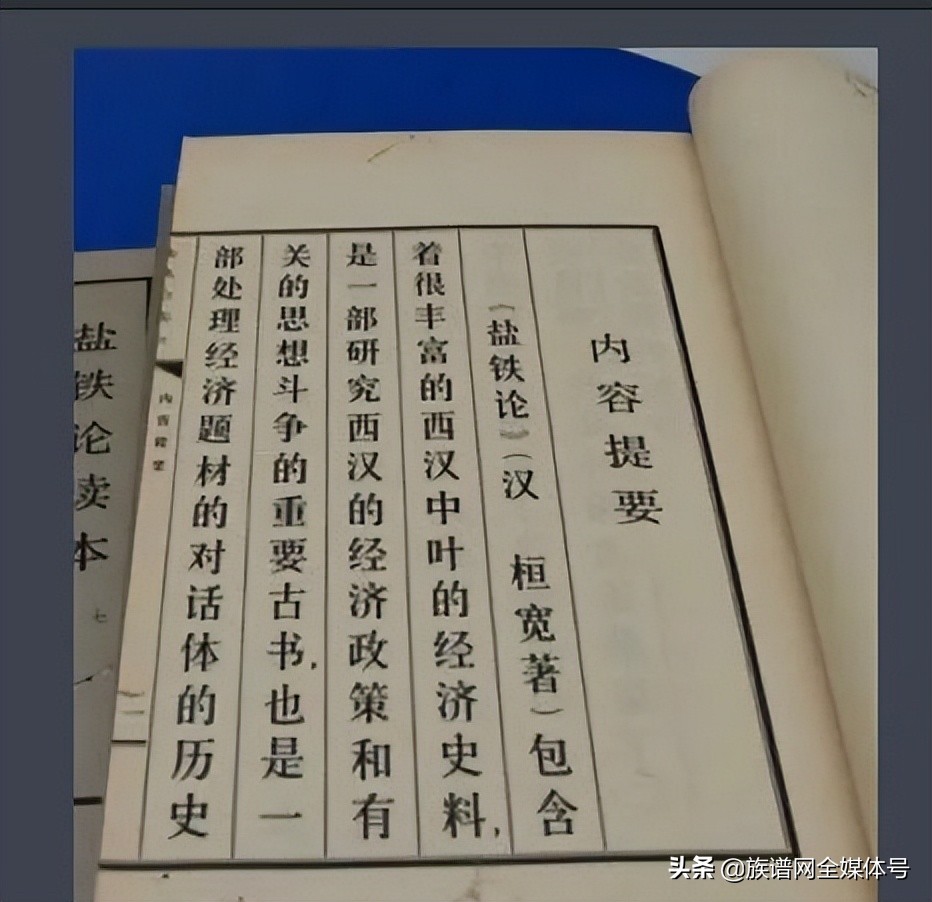 内容提要
《盐铁论》（汉 桓宽著）包含
着很丰富的西汉中叶的经济史料,
是一部研究西汉的经济政策和有
关的思想斗争的重要古书,也是一
部处理经济题材的对话体的历史
内容提要
一
盐铁论读本
七
头条 @族谱网全媒体号